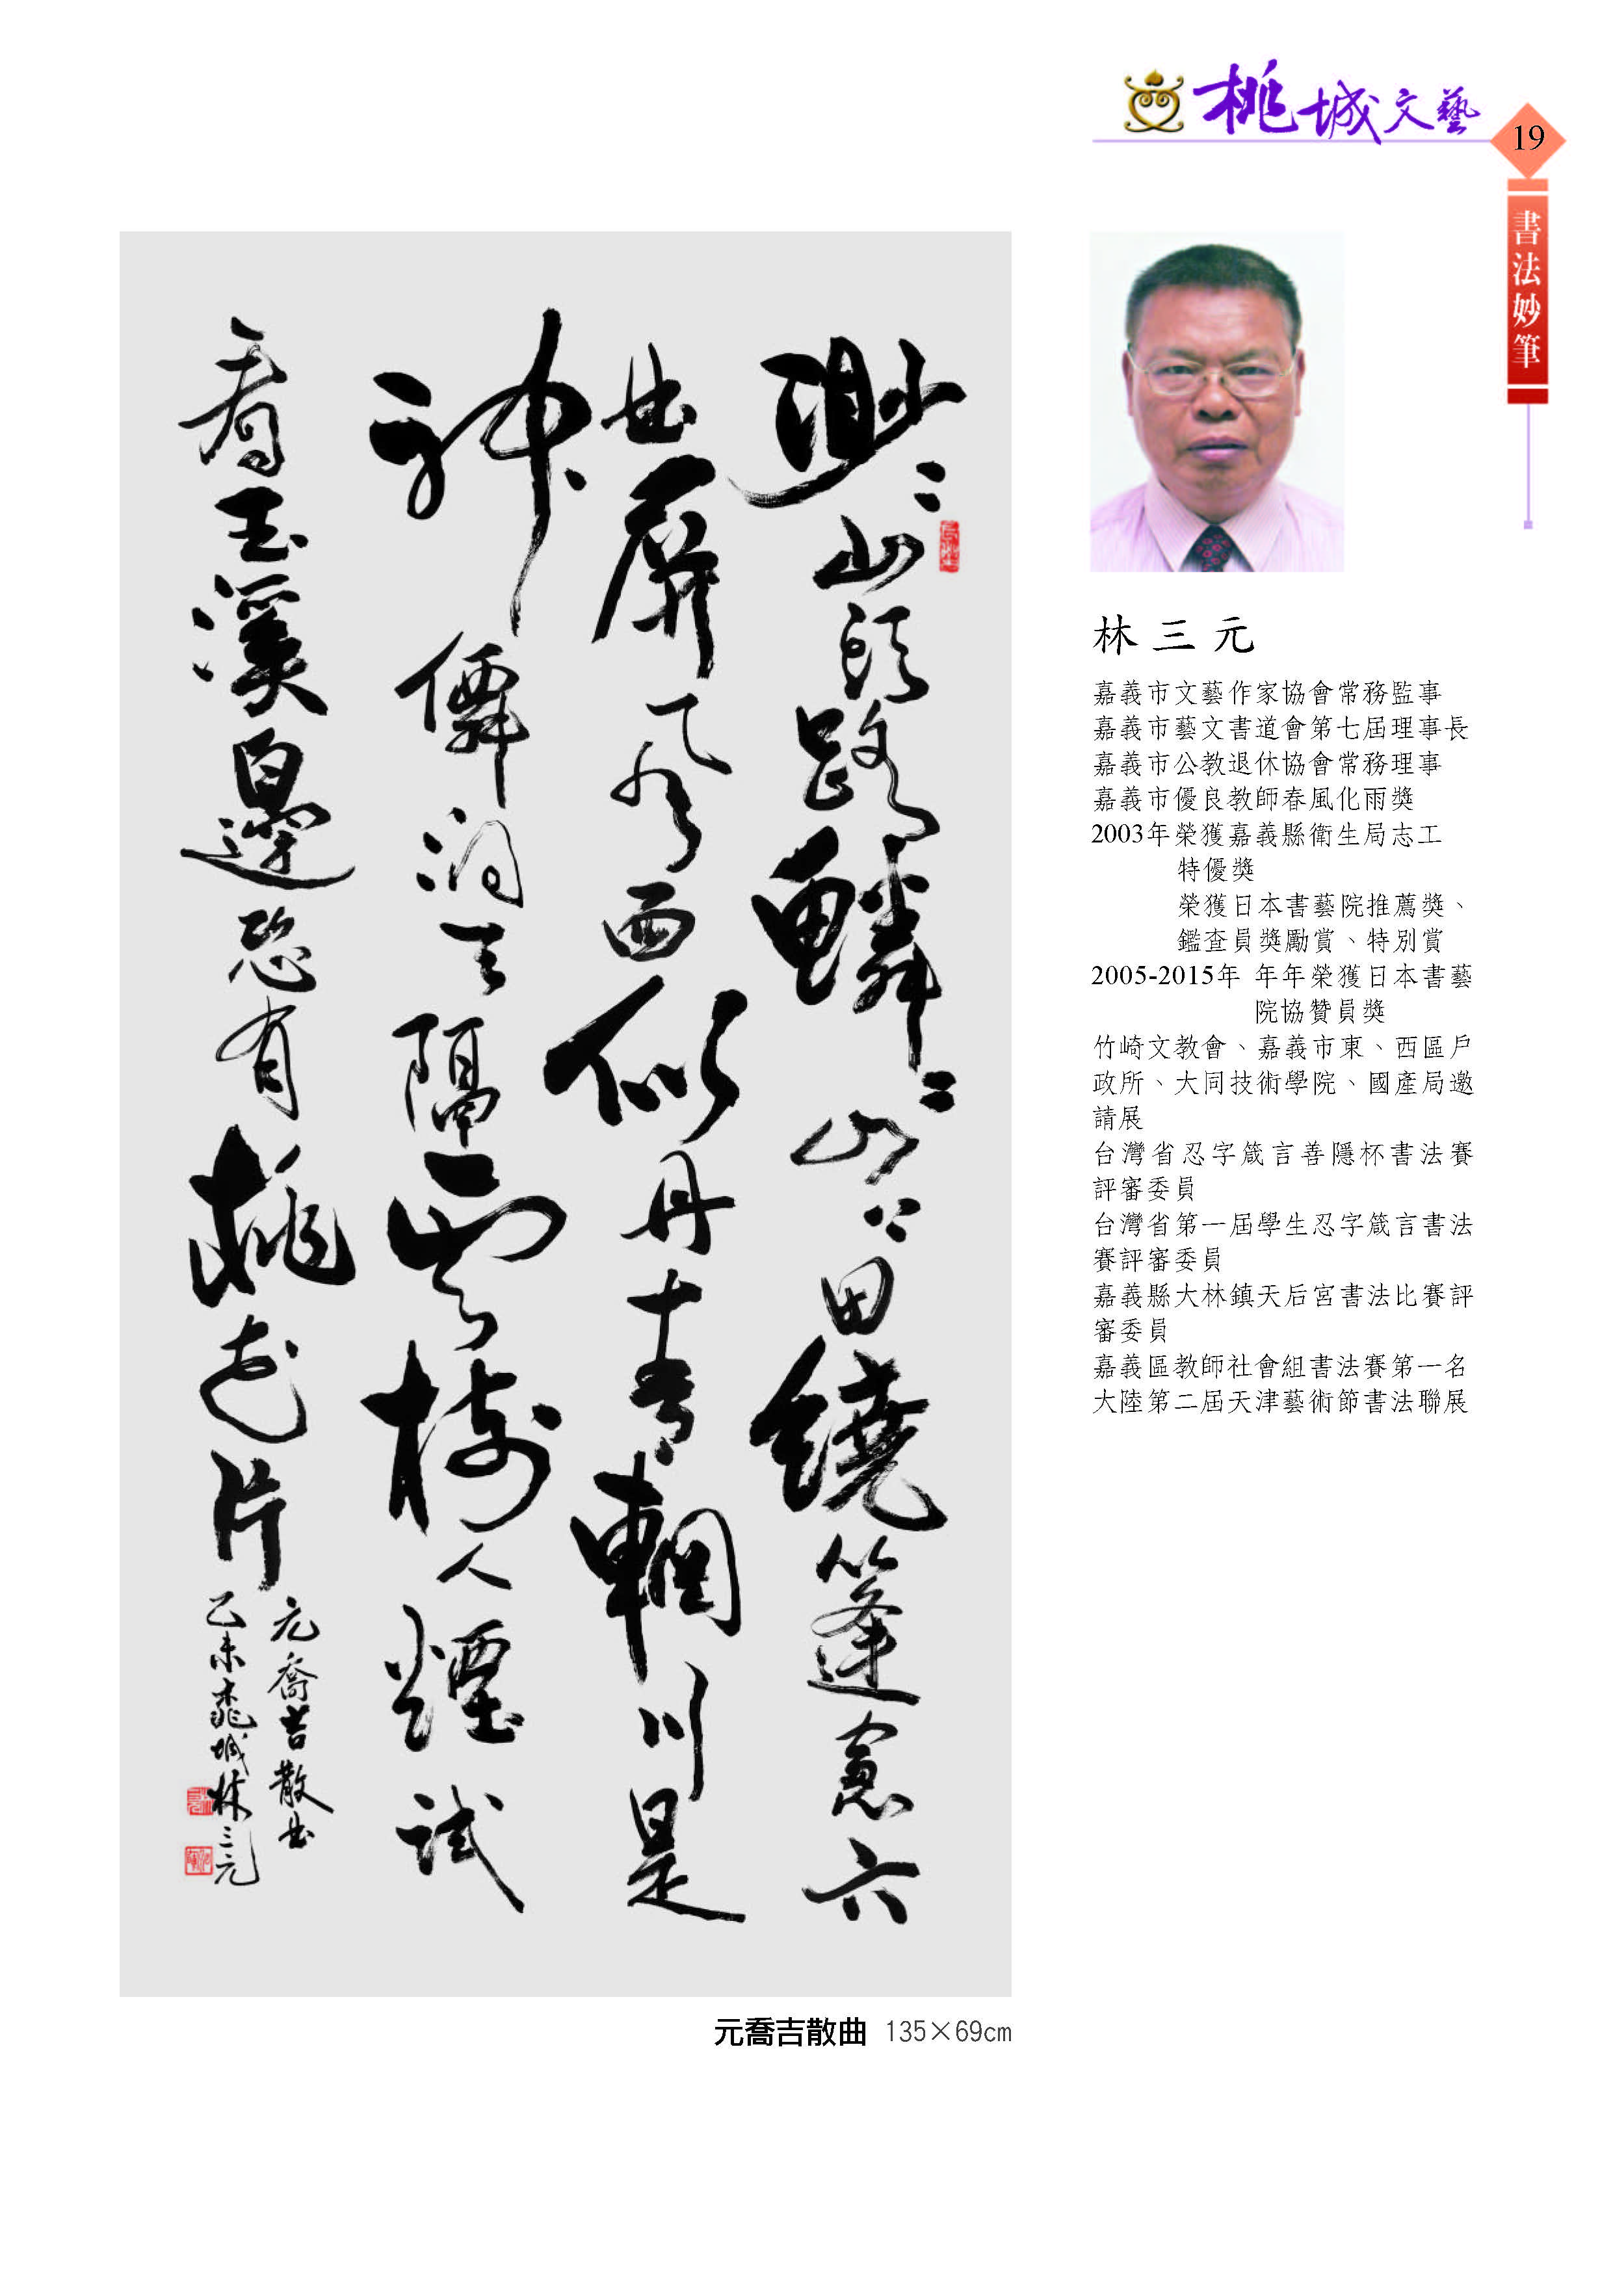 桃城文藝
19
書法妙筆
渺〻山頭路鱗〻山上田繞篷窓六
曲屏風面似丹青輞川是
神僊洞天隔雲樹人煙試
看玉溪邊恐有桃花片
元喬吉散曲
乙未桃城林三元
元喬吉散曲 135×69cm
林三元
嘉義市文藝作家協會常務監事
嘉義市藝文書道會第七屆理事長
嘉義市公教退休協會常務理事
嘉義市優良教師春風化雨獎
2003年榮獲嘉義縣衛生局志工
特優獎
榮獲日本書藝院推薦獎、
鑑查員獎勵賞、特別賞
2005-2015年 年年榮獲日本書藝
院協贊員獎
竹崎文教會、嘉義市東、西區戶
政所、大同技術學院、國產局邀
請展
台灣省忍字箴言善隱杯書法賽
評審委員
台灣省第一屆學生忍字箴言書法
賽評審委員
嘉義縣大林鎮天后宮書法比賽評
審委員
嘉義區教師社會組書法賽第一名
大陸第二屆天津藝術節書法聯展